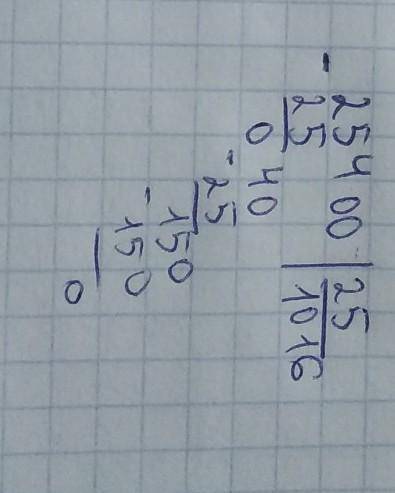 - 25400 | 25
25 1016
0 40
- 25
150
- 150
0